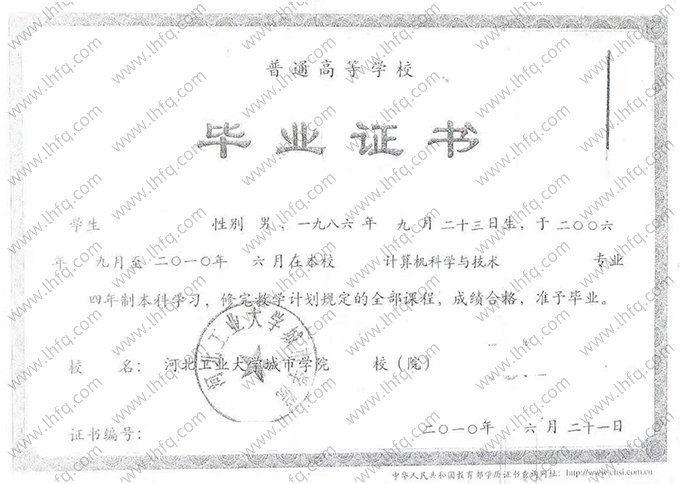 普通高等学校
毕业证书
学生 性别 男，一九八六年 九月二十三日生，于二〇〇六
年 九月至二〇一〇年 六月在本校 计算机科学与技术 专业
四年制本科学习，修完教学计划规定的全部课程，成绩合格，准予毕业。
河北工业大学城市学院
校 名： 河北工业大学城市学院 校（院）
证书编号： 二〇一〇年 六月二十一日
中华人民共和国教育部学历证书查询网址：http://www.chsi.com.cn
www.lhfq.com